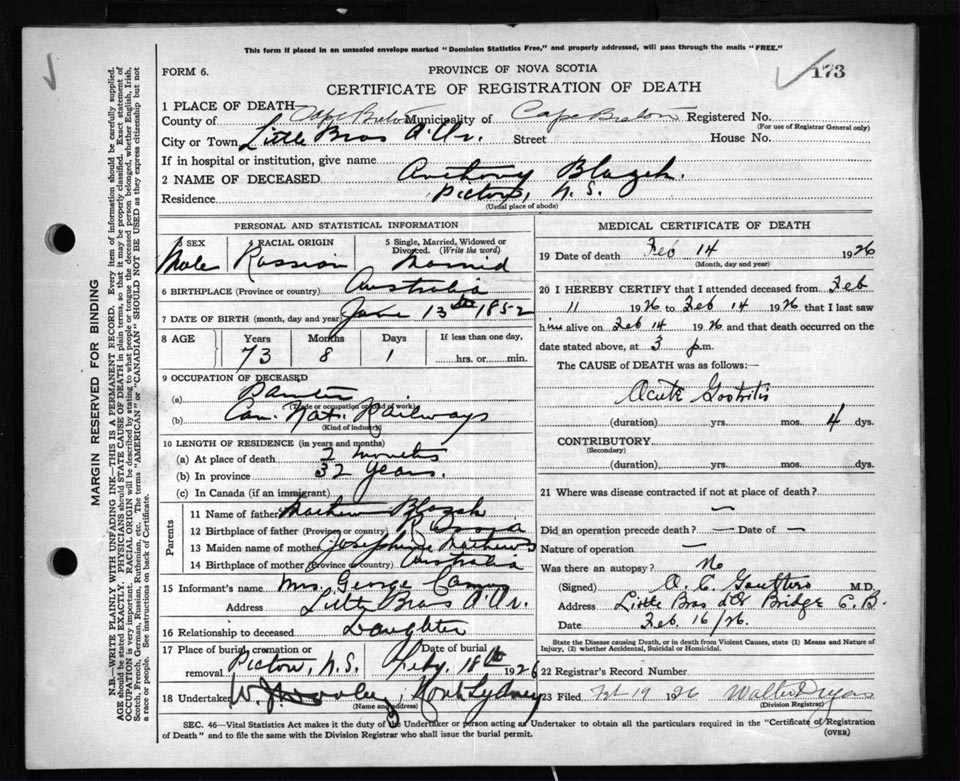 This form if placed in an unsealed envelope marked "Dominion Statistics Free," and properly addressed, will pass through the mails "FREE."
FORM 6.
PROVINCE OF NOVA SCOTIA
173
CERTIFICATE OF REGISTRATION OF DEATH
1 PLACE OF DEATH
County of Cape Breton Municipality of Cape Breton Registered No.
(For use of Registrar General only)
City or Town Little Bras d'Or. Street House No.
If in hospital or institution, give name
2 NAME OF DECEASED Anthony Blazek.
Residence Pictou, N.S.
(Usual place of abode)
PERSONAL AND STATISTICAL INFORMATION
3 SEX 4 RACIAL ORIGIN 5 Single, Married, Widowed or Divorced. (Write the word)
Male Russian Married
6 BIRTHPLACE (Province or country) Australia
7 DATE OF BIRTH (month, day and year) June 13th 1852
8 AGE Years Months Days If less than one day,
73 8 1 hrs. or min.
9 OCCUPATION OF DECEASED
(a) Painter
(Trade or occupation or kind of work)
(b) Can. Nat. Railways
(Kind of industry)
10 LENGTH OF RESIDENCE (in years and months)
(a) At place of death 2 months
(b) In province 32 years.
(c) In Canada (if an immigrant)
Parents
11 Name of father Mathew Blazek
12 Birthplace of father (Province or country) Russia
13 Maiden name of mother Josephine Mathews
14 Birthplace of mother (Province or country) Australia
15 Informant's name Mrs. George
Address Little Bras d'Or.
16 Relationship to deceased Daughter
17 Place of burial, cremation or removal Pictou, N.S. Date of burial Feby. 18th 1926
18 Undertaker W. J. Dooley, North Sydney
(Name and address)
MEDICAL CERTIFICATE OF DEATH
19 Date of death Feb 14 1926
(Month, day and year)
20 I HEREBY CERTIFY that I attended deceased from Feb
11 1926 to Feb 14 1926 that I last saw
him alive on Feb 14 1926 and that death occurred on the
date stated above, at 3 p.m.
The CAUSE OF DEATH was as follows:
Acute Gastritis
(duration) yrs. mos. 4 dys.
CONTRIBUTORY
(Secondary)
(duration) yrs. mos. dys.
21 Where was disease contracted if not at place of death?
—
Did an operation precede death? — Date of —
Nature of operation —
Was there an autopsy? No
(Signed) O. C. M.D.
Address Little Bras d'Or Bridge C.B.
Date Feb 16/26.
State the Disease causing Death, or in death from Violent Causes, state (1) Means and Nature of Injury, (2) whether Accidental, Suicidal or Homicidal.
22 Registrar's Record Number
23 Filed Feb 19 1926 Walter
(Division Registrar)
SEC. 46—Vital Statistics Act makes it the duty of the Undertaker or person acting as Undertaker to obtain all the particulars required in the "Certificate of Registration
of Death" and to file the same with the Division Registrar who shall issue the burial permit.
(OVER)
MARGIN RESERVED FOR BINDING
N.B.—WRITE PLAINLY WITH UNFADING INK—THIS IS A PERMANENT RECORD. Every item of information should be carefully supplied.
AGE should be stated EXACTLY. PHYSICIANS should STATE CAUSE OF DEATH in plain terms, so that it may be properly classified. Exact statement of
OCCUPATION is very important. RACIAL ORIGIN will be described by stating to what people or tongue the deceased person belonged, whether English, Irish,
Scotch, French, German, Russian, Ruthenian, etc. The terms "AMERICAN" or "CANADIAN" SHOULD NOT BE USED as they express citizenship but not
a race or people. See instructions on back of Certificate.